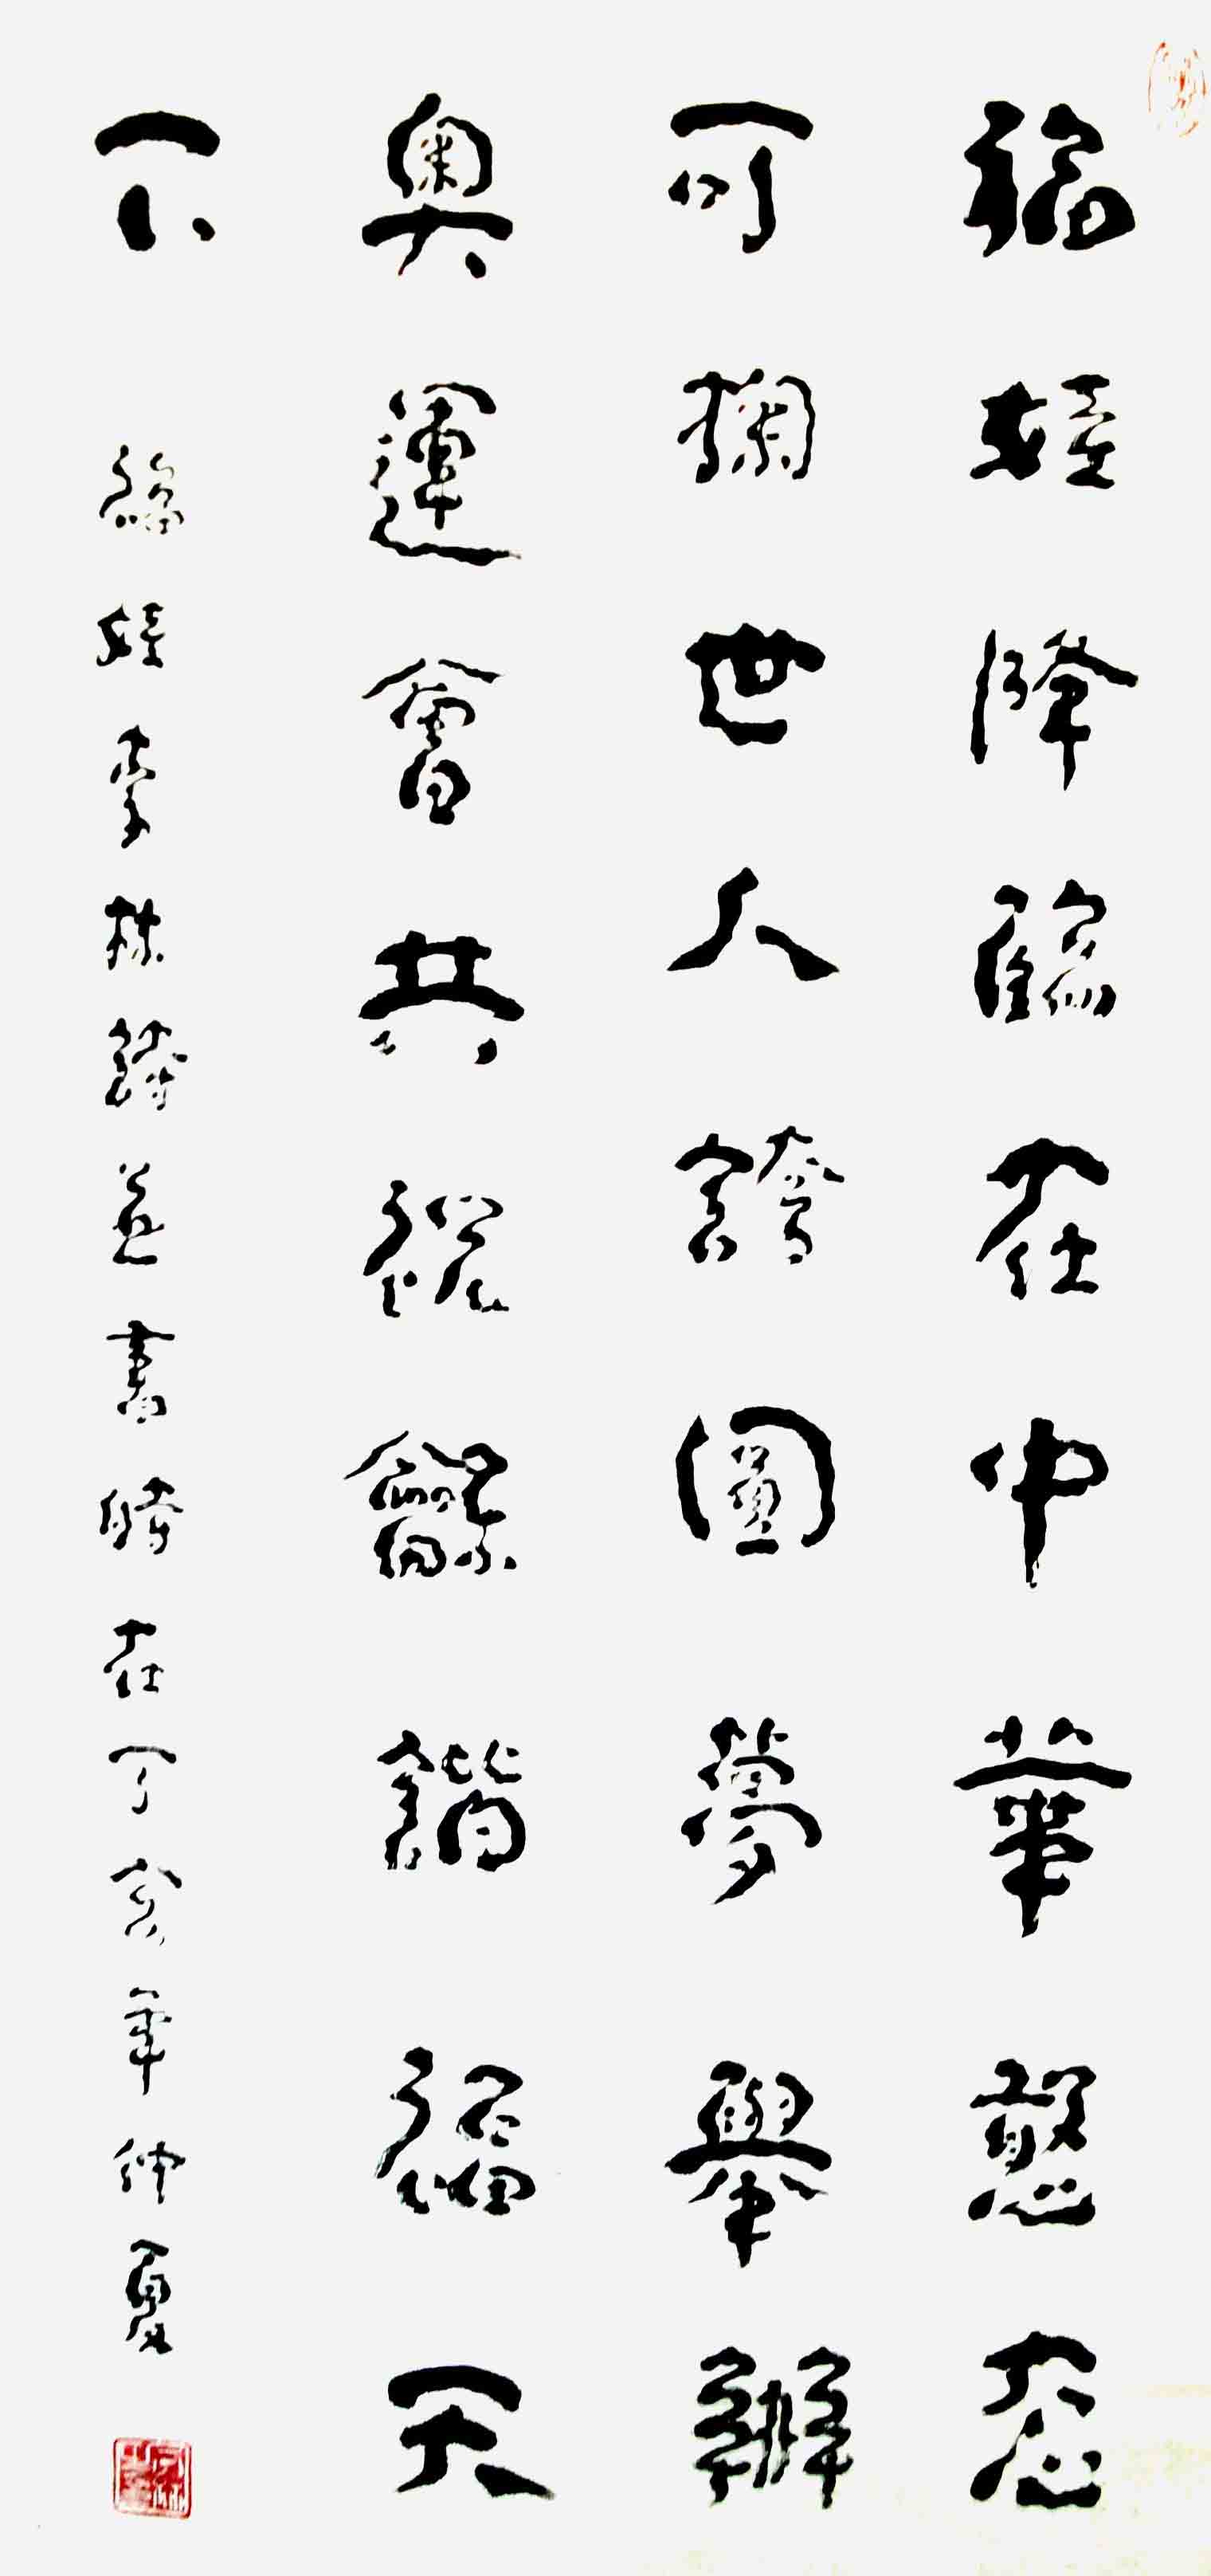 福娃降臨在中華憨态
可掬世人誇圓夢舉辦
奧運會共祝龢諧福天
下 福娃李林詩並書時在丁亥年仲夏